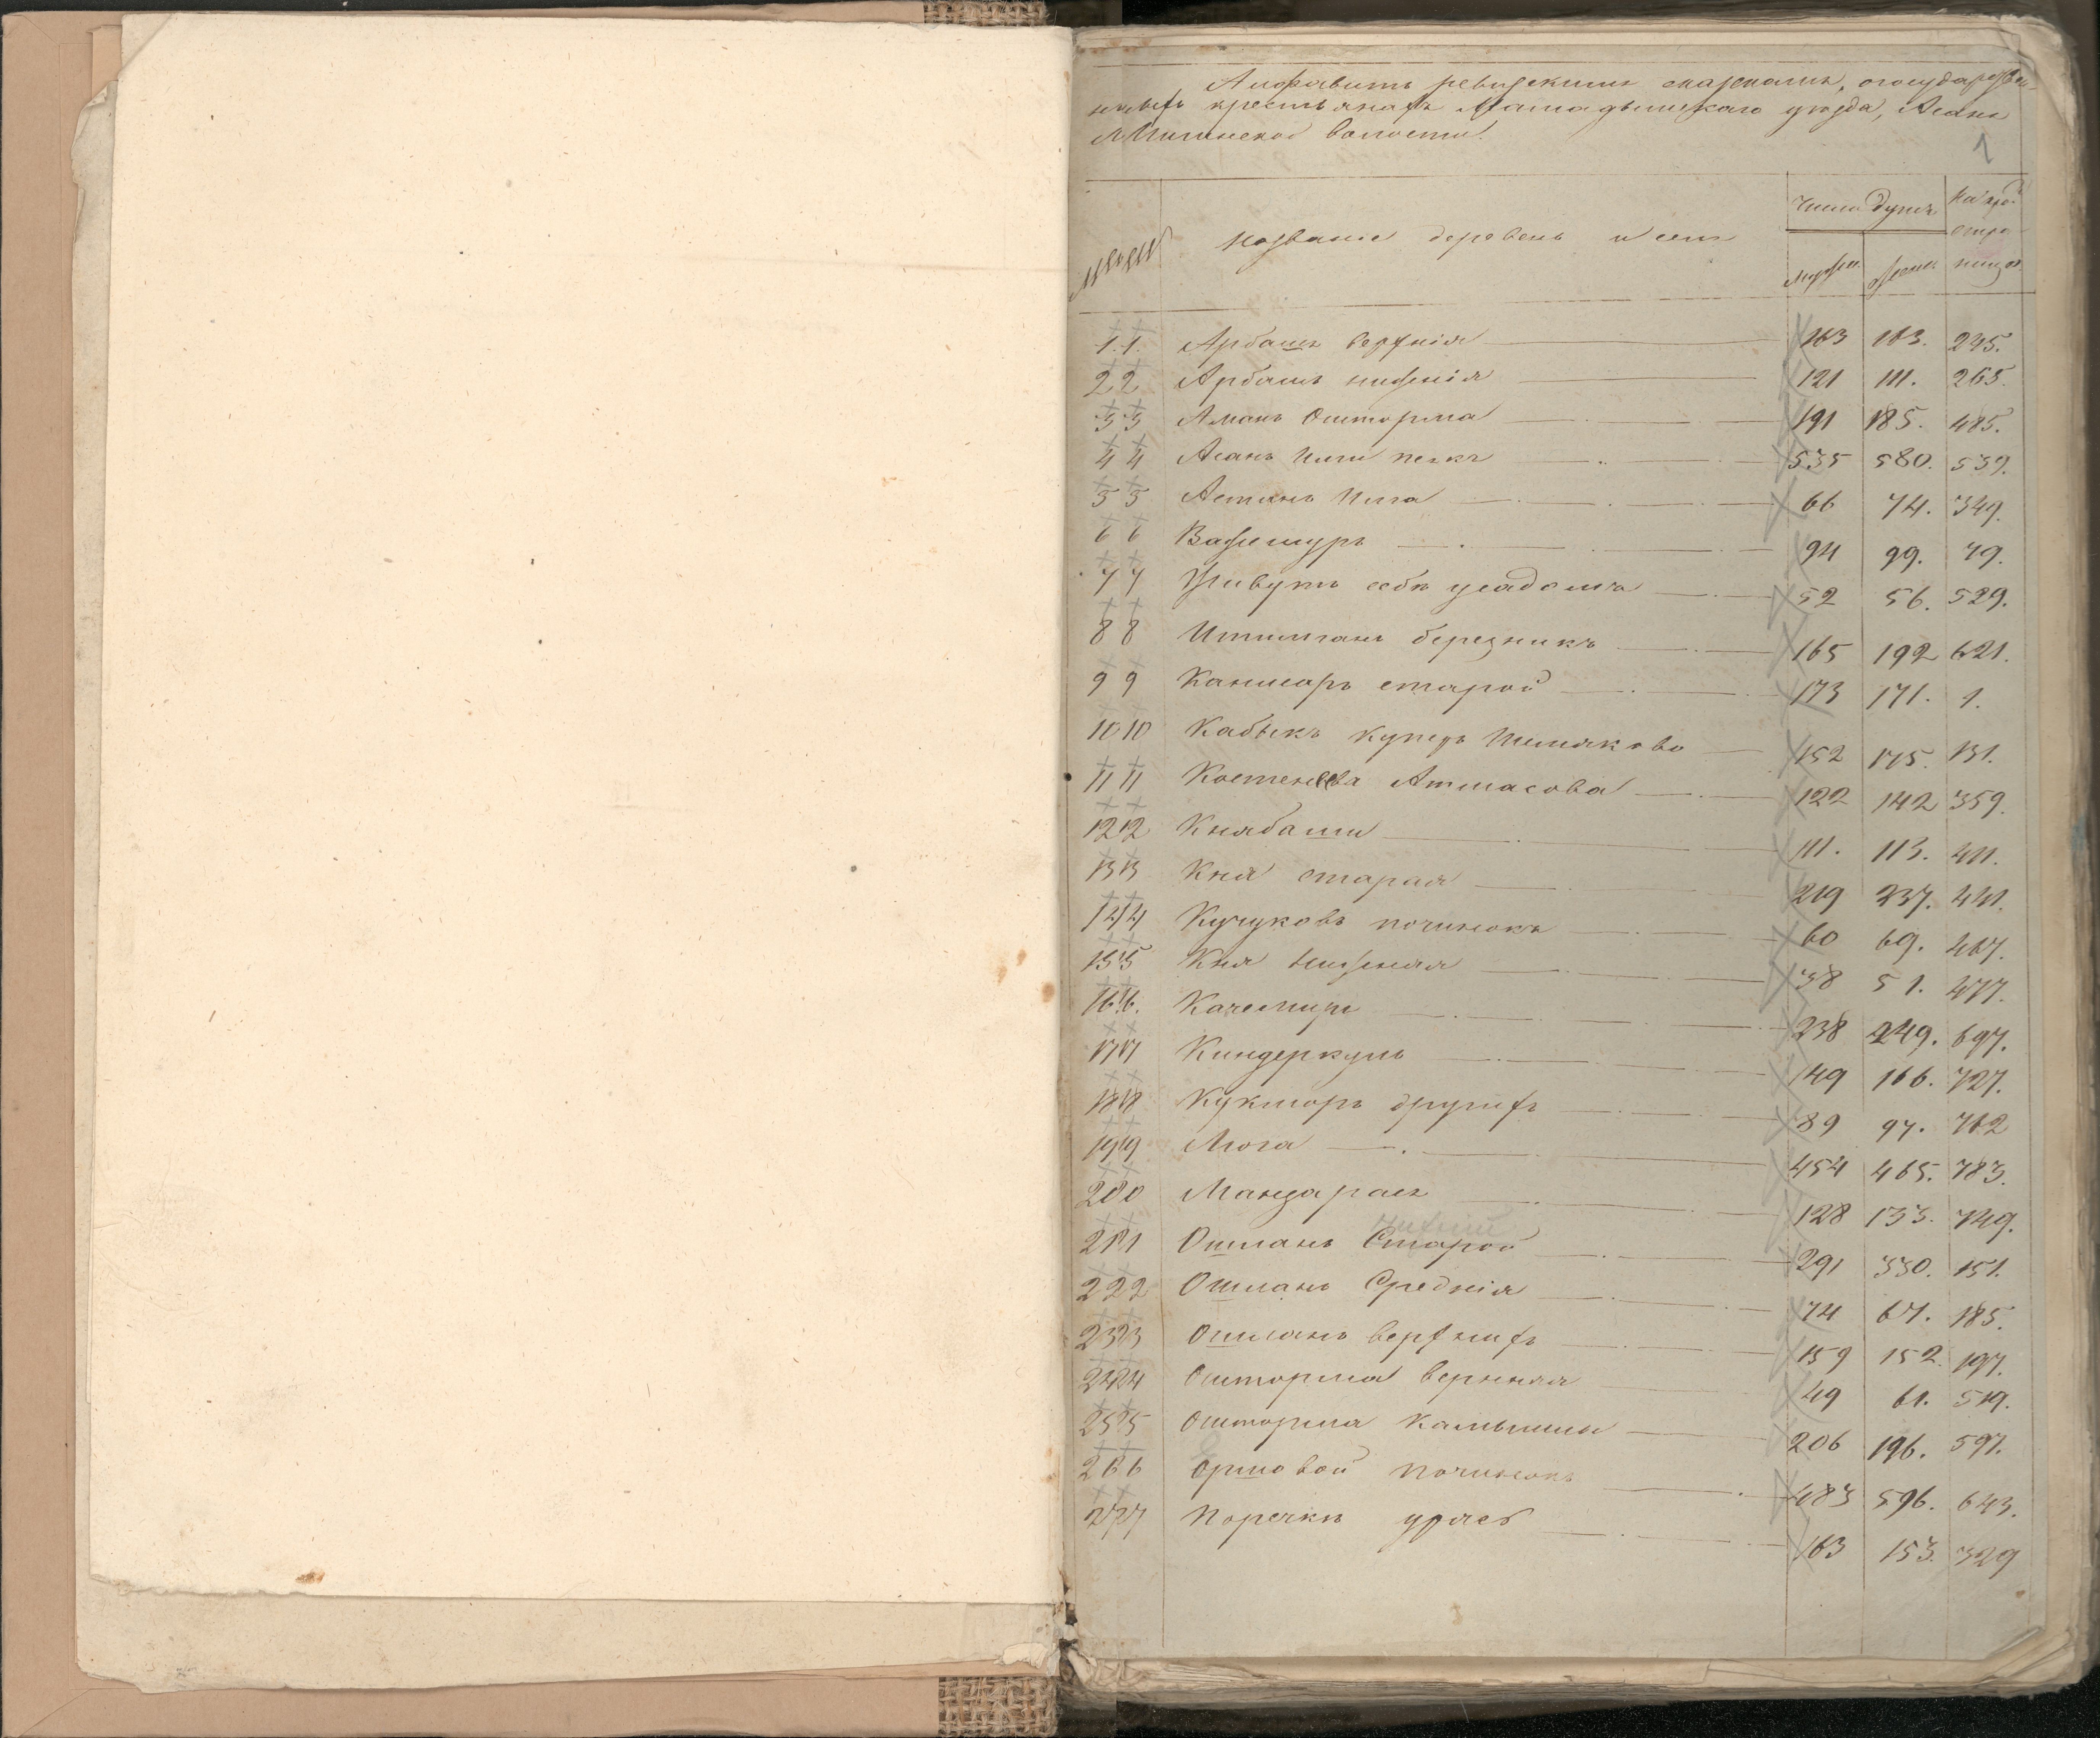 Алфавитъ ревизскимъ сказкамъ, о государствен-
ныхъ крестьянахъ Мамадышскаго уѣзда, Асанъ
Илинской волости.
1
№№ Названіе деревень и селъ Число душъ На кро
стра
мужск. женск ницѣ
1. 1. Арбашъ верхнія 163 163. 245.
2 2 Арбашъ нижнія 121 111. 265.
3 3 Аманъ Ошторма 191 185. 485.
4 4 Асанъ Илги 535 580. 539.
5 5 Астанъ Илга 66 74. 349.
6 6 Важшуръ 94 99. 79.
7 7 Живутъ себѣ усадомъ 52 56. 529.
8 8 березникъ 165 192 621.
9 9 Канисаръ старой 173 171. 1.
10 10 Кабыкъ Куперъ Шемяково 152 175. 131.
11 11 Костенеева Атмасова 122 142 359.
12 12 Княбаши 111. 113. 411.
13 13 Кня старая 219 237. 421.
14 14 Кучуковъ починокъ 60 69. 467.
15 15 Кня нижняя 38 51. 477.
16 16. Качемиръ 238 249. 697.
17 17 Киндеркуль 149 166. 727.
18 18 Кукморъ другихъ 89 97. 762
19 19 Люга 454 465. 783.
20 20 Манзарасъ 128 133. 749.
нижній
21 21 Ошланъ Старой 291 330. 151.
22 22 Ошланъ Среднія 74 67. 185.
23 23 Ошланъ верхнихъ 159 152. 197.
24 24 Ошторма верхняя 49 61. 519.
25 25 Ошторма Камышлы 206 196. 597.
26 26 починокъ 483 596. 643.
27 27 Поречки уряс 163 153. 329